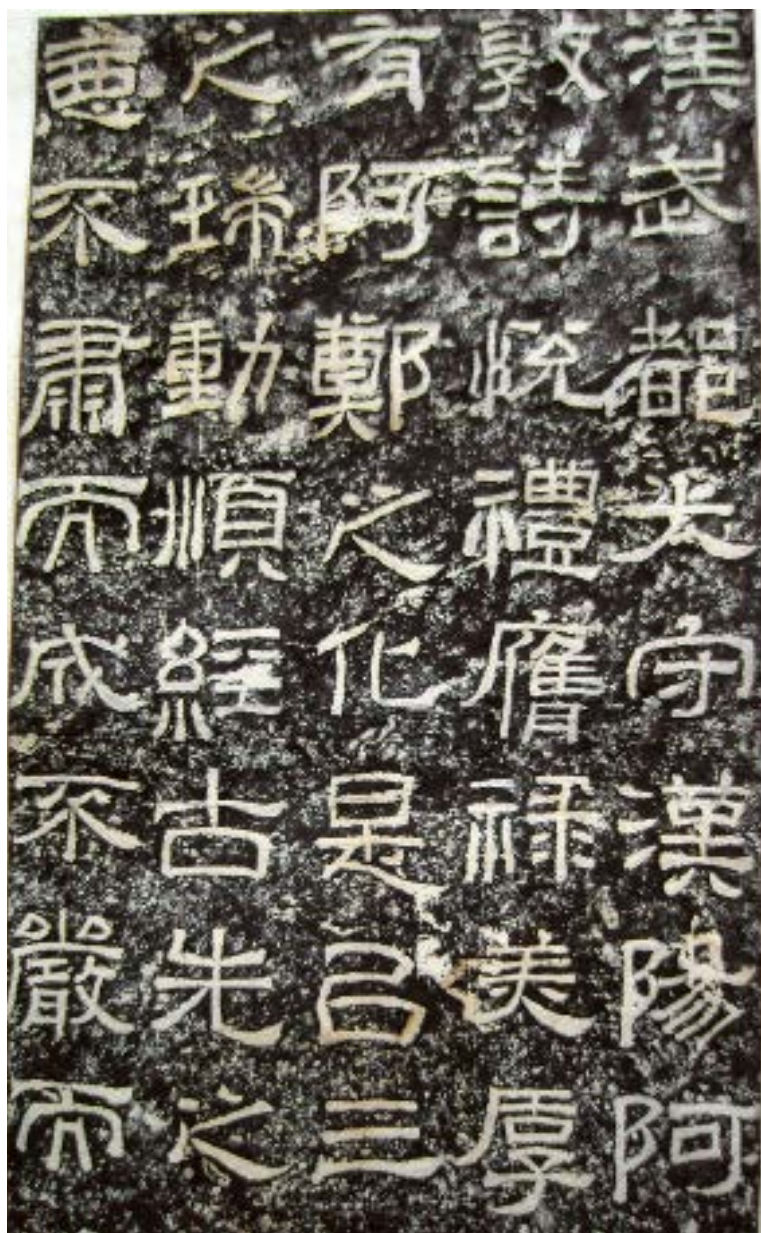 漢武都太守漢陽阿
敦詩悅禮膺祿美厚
有阿鄭之化是以三
之瑞動順經古先之
惡不肅而成不嚴而